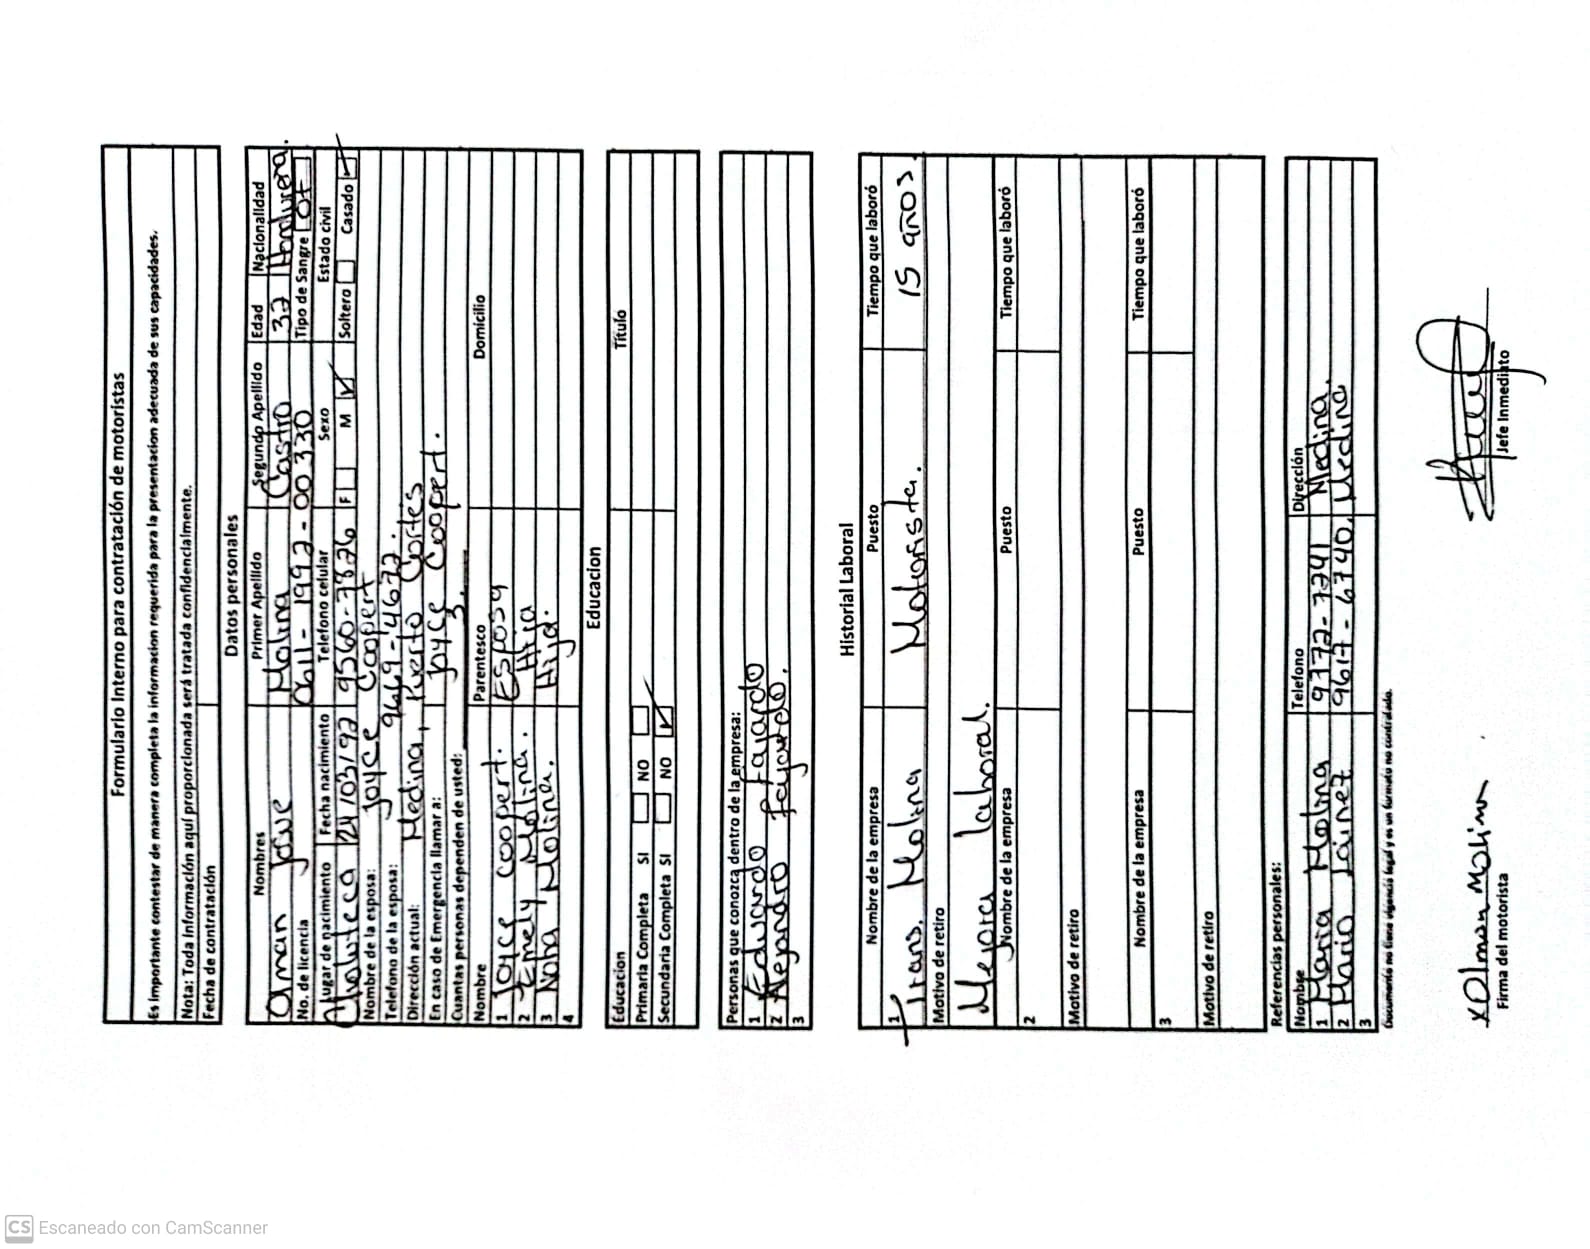 Formulario Interno para contratación de motoristas
Es importante contestar de manera completa la informacion requerida para la presentacion adecuada de sus capacidades.
Nota: Toda Información aquí proporcionada será tratada confidencialmente.
Fecha de contratación
Datos personales
Nombres Primer Apellido Segundo Apellido Edad Nacionalidad
Josue Molina Castro 32 Hondurena.
No. de licencia 0611-1992-00330 Tipo de Sangre O+
Lugar de nacimiento Fecha nacimiento Telefono celular Sexo Estado civil
Choluteca 24/03/92 9560-7876 F M Soltero Casado
Nombre de la esposa: Joyce Coopert
Telefono de la esposa: 9669-4672.
Dirección actual: Medina, Puerto Cortés
En caso de Emergencia llamar a: Joyce Coopert.
Cuantas personas dependen de usted: 3.
Nombre Parentesco Domicilio
1 Joyce Coopert. Esposa
2 Emely Molina. Hija
3 Molina. Hija.
4
Educacion
Educacion Título
Primaria Completa SI NO
Secundaria Completa SI NO
Personas que conozca dentro de la empresa:
1 Eduardo Fajardo
2 Alejandro Fajardo.
3
Historial Laboral
Nombre de la empresa Puesto Tiempo que laboró
1 Trans. Molina Motorista. 15 años.
Motivo de retiro
Mejora laboral.
Nombre de la empresa Puesto Tiempo que laboró
2
Motivo de retiro
Nombre de la empresa Puesto Tiempo que laboró
3
Motivo de retiro
Referencias personales:
Nombre Telefono Dirección
1 Maria Molina 9372-7741 Medina.
2 Mario Lainez 9617-6740, Medina
3
Documento no tiene vigencia legal y es un formato no controlado.
Olman Molina
Firma del motorista Jefe Inmediato
CS Escaneado con CamScanner